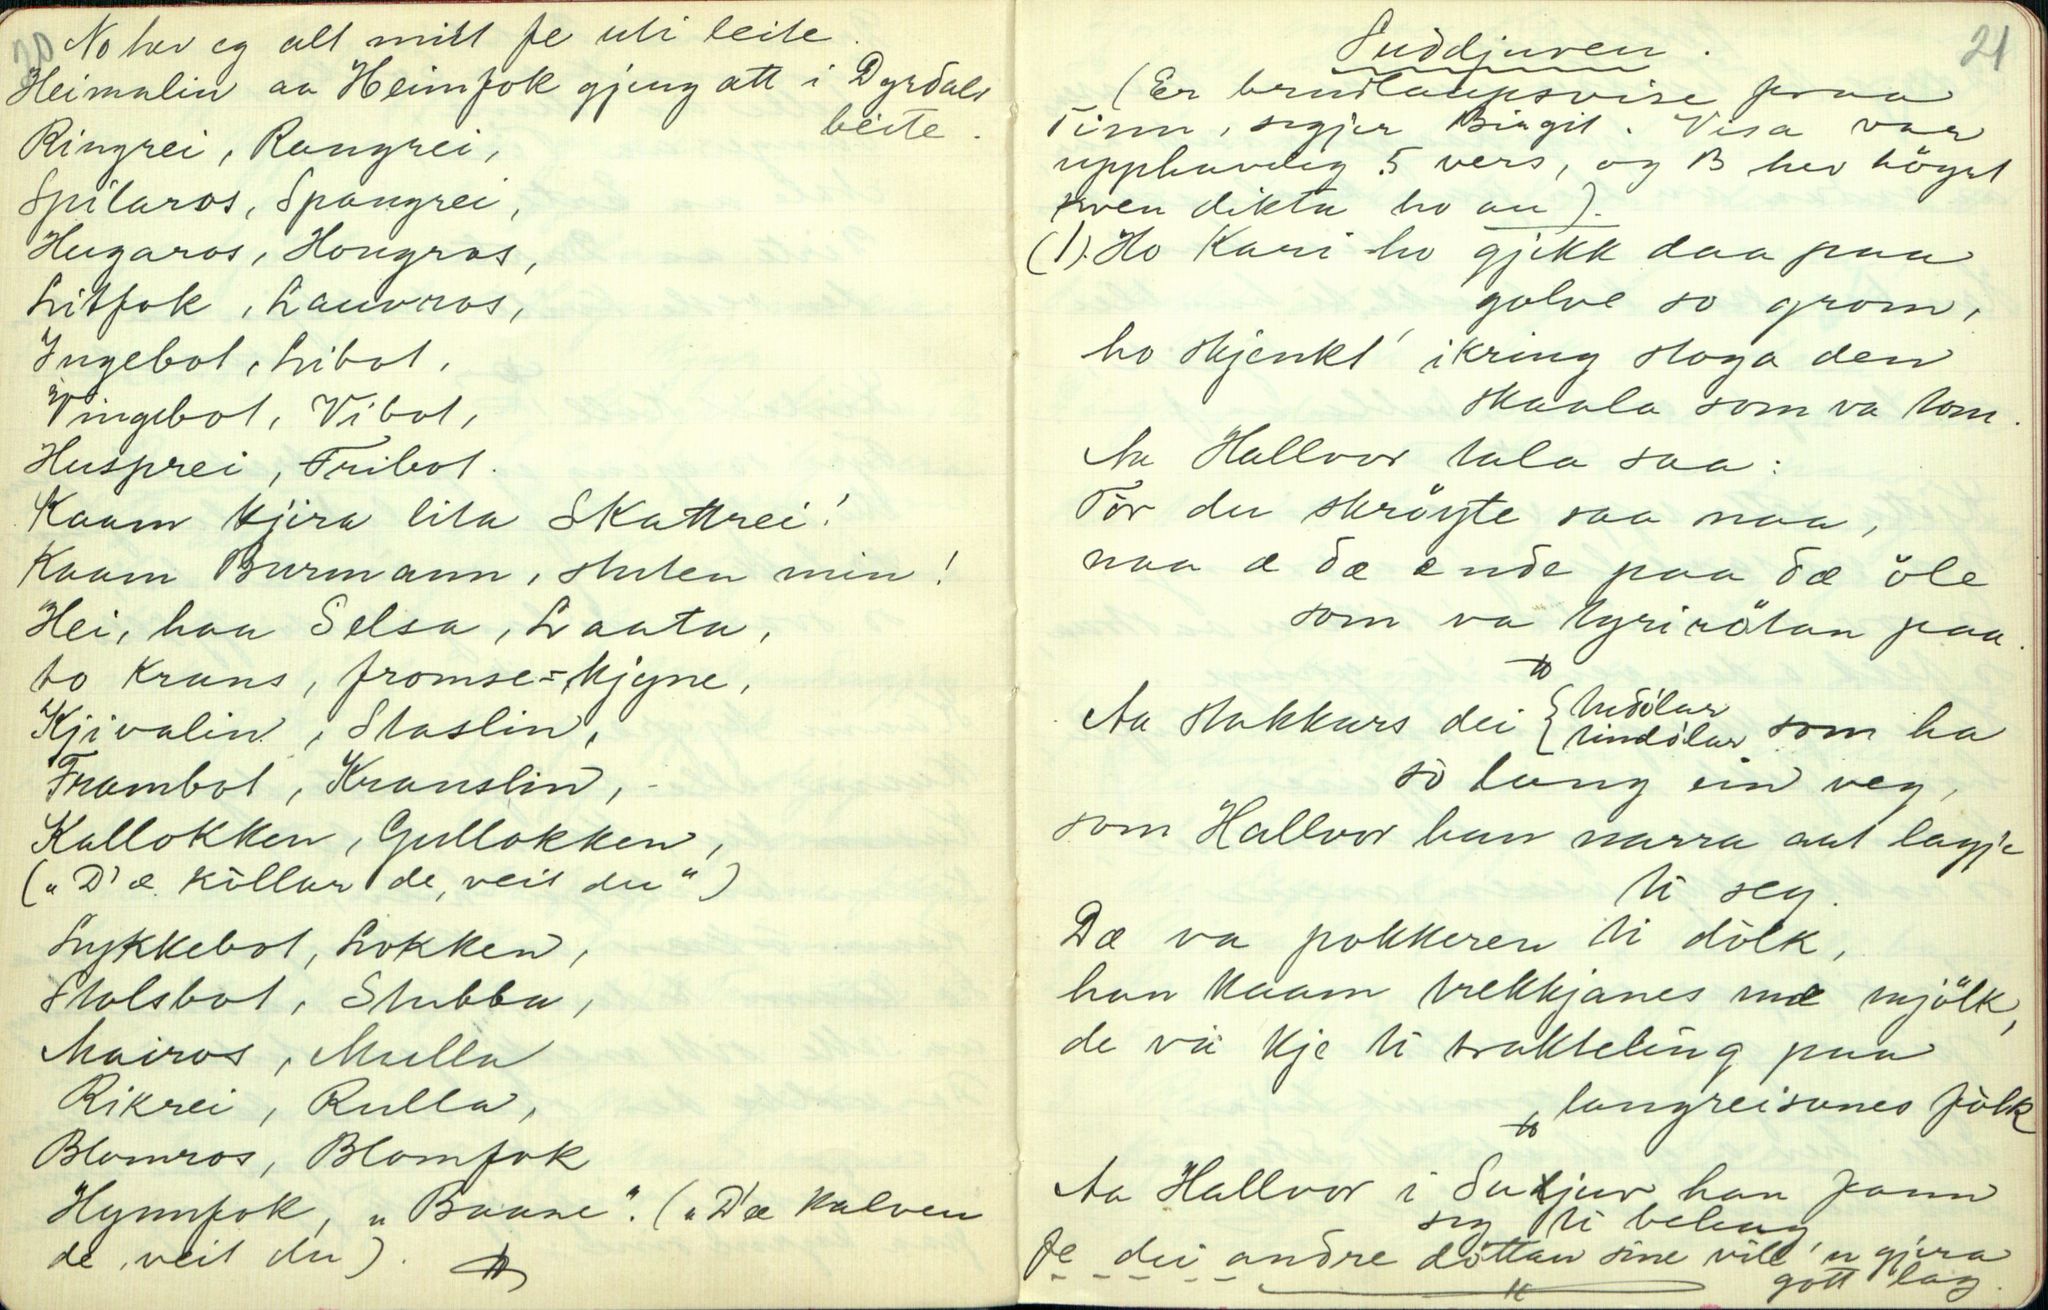 20
No hev eg alt mitt fe uti leite.
Heimalin aa Heimfok gjeng att i Dyrdals
beite.
Ringrei, Rangrei,
Spilaros, Spangrei,
Hugaros, Hongros,
Litfok, Lauvros,
Ingebot, Libot,
Vingebot, Vibot,
Husprei, Fribot.
Kaam kjira lita Skattrei!
Kaam Burmann, stuten min!
Hei, haa Selsa, Laata,
to Krans, fromse-kjyne,
Kjivalin, Staslin,
Frambot, Kranslin,
Kallokken, Gullokken,
(„D'æ kòllur de, veit du“)
Lykkebot, Lokken,
Stolsbot, Stubba,
Mairos, Mulla
Rikrei, Rulla,
Blomros, Blomfok
Hynnfok, „Baase“. („D'æ kalven
de, veit du).
21
Suddjuven.
(Er brudlaupsvise fraa
Tinn, segjer Birgit. Visa var
upphavleg 5 vers, og B hev høyrt
kven dikta ho au).
(1). Ho Kari ho gjekk daa paa
golve so grom,
ho skjenkt' ikring stoga den
skaala som va tom.
Aa Hallvor tala saa:
Før du skrøyte saa naa,
naa æ dæ ende paa dæ öle
som va tyrirötan paa.
Aa stakkars dei { tudölar
tindölar som ha
so lang ein veg,
som Hallvor han narra aat lagje
ti seg.
Dæ va pokkeren ti dölk,
han kaam trekkjanes mæ mjölk,
de va kje ti trakteling paa
langreisanes folk
Aa Hallvor i Sudjuv han fann
seg ti behag
fe dei andre döttan sine vill'n gjera
gott lag.